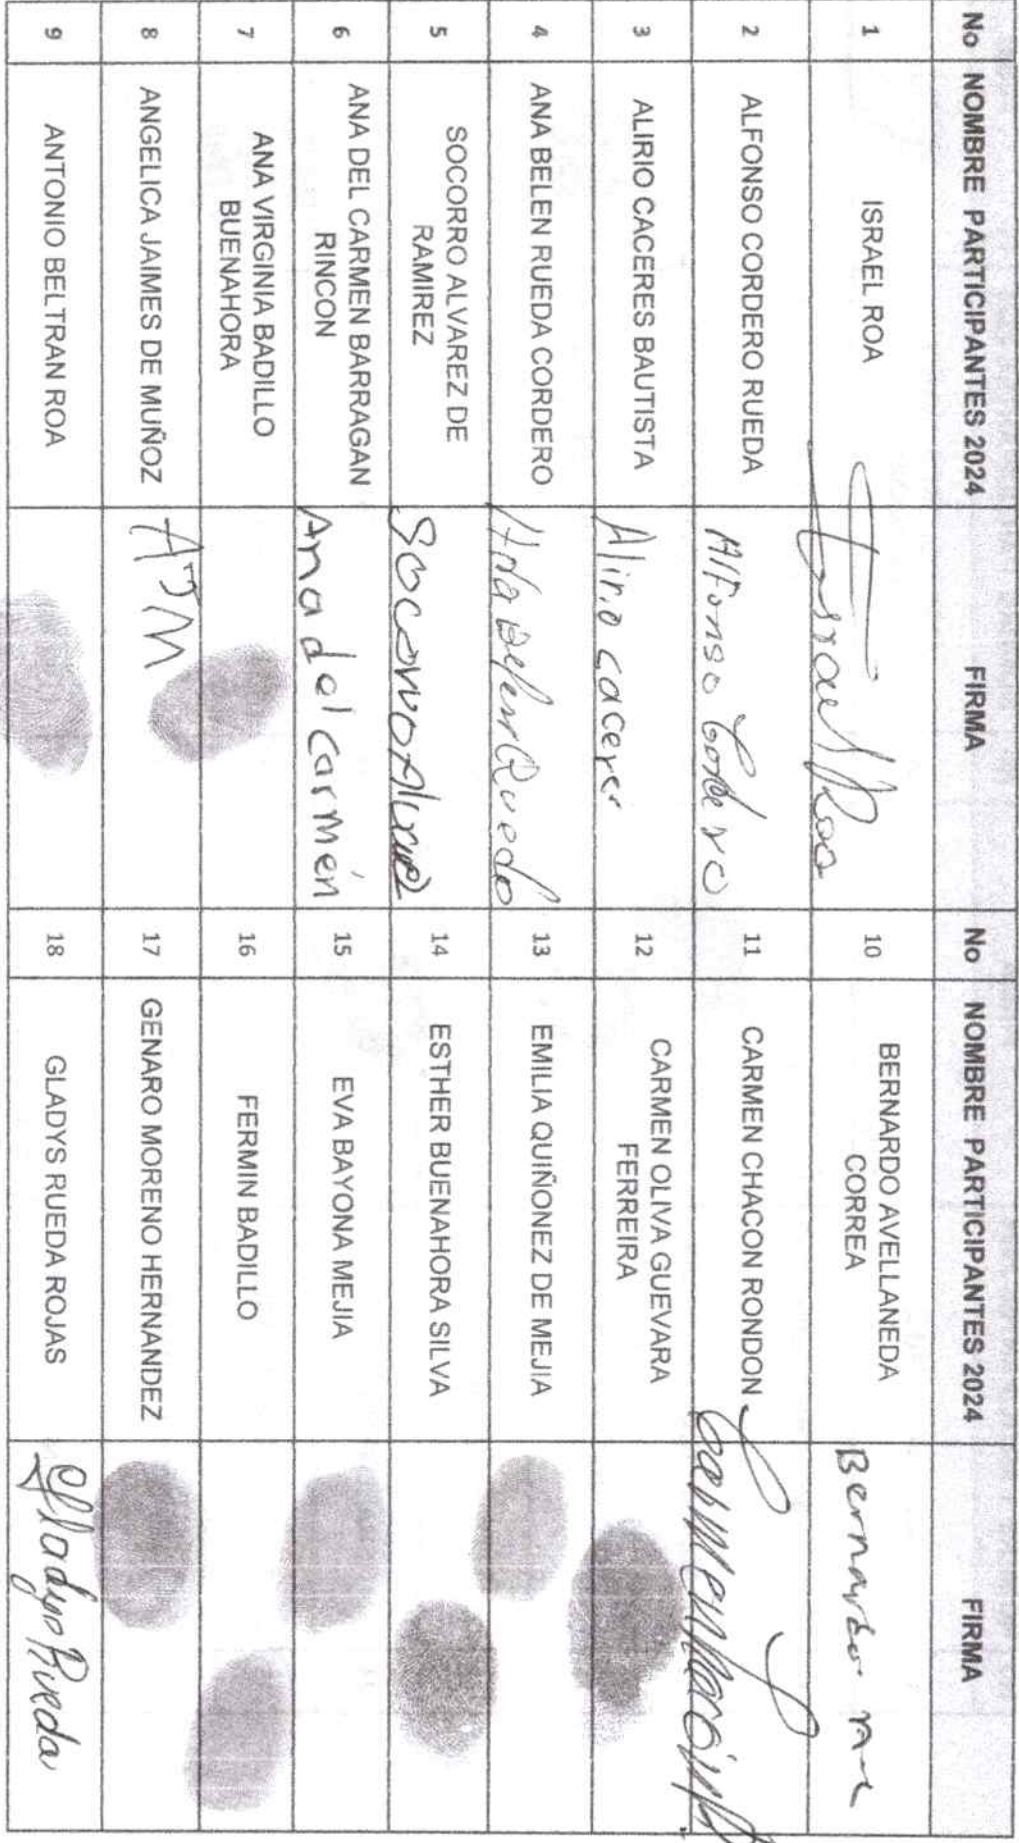 No NOMBRE PARTICIPANTES 2024 FIRMA No NOMBRE PARTICIPANTES 2024 FIRMA
1 ISRAEL ROA Israel Roa 10 BERNARDO AVELLANEDA CORREA Bernardo
2 ALFONSO CORDERO RUEDA Alfonso Cordero 11 CARMEN CHACON RONDON Carmen
3 ALIRIO CACERES BAUTISTA Alirio Caceres 12 CARMEN OLIVA GUEVARA FERREIRA
4 ANA BELEN RUEDA CORDERO Ana Belen Rueda 13 EMILIA QUIÑONEZ DE MEJIA
5 SOCORRO ALVAREZ DE RAMIREZ Socorro Alvarez 14 ESTHER BUENAHORA SILVA
6 ANA DEL CARMEN BARRAGAN RINCON Ana del Carmen 15 EVA BAYONA MEJIA
7 ANA VIRGINIA BADILLO BUENAHORA 16 FERMIN BADILLO
8 ANGELICA JAIMES DE MUÑOZ AJM 17 GENARO MORENO HERNANDEZ
9 ANTONIO BELTRAN ROA 18 GLADYS RUEDA ROJAS Gladys Rueda